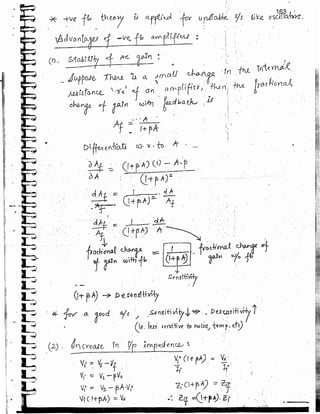 163
* +ve fb theory is applied for unstable s/s like oscillators.
Advantages of -ve fb amplifiers :
(1). Stability of AC gain :
Suppose There is a small change in the internal
resistance 're' of an amplifier, then the fractional
change of gain with feedback is
Af = A / 1+βA
Differentiate w.r.to A
∂Af / ∂A = (1+βA)(1) - A.β / (1+βA)²
dAf / Af = 1 / (1+βA)² . dA / Af
dAf / Af = 1 / (1+βA) . dA / A
fractional change of gain with fb = [1 / (1+βA)] fractional change of gain w/o fb
Sensitivity
(1+βA) → Desensitivity
* for a good s/s, Sensitivity↓ => . Desensitivity↑
(ie. less sensitive to noise, temp. etc)
(2). Increase in I/p impedance :
Vi = Vs - Vf
Vi = Vs - βVo
Vi = Vs - βA.Vi
Vi(1+βA) = Vs
Vi(1+βA) / Ii = Vs / Ii
Zi(1+βA) = Zif
∴ Zif = (1+βA).Zi